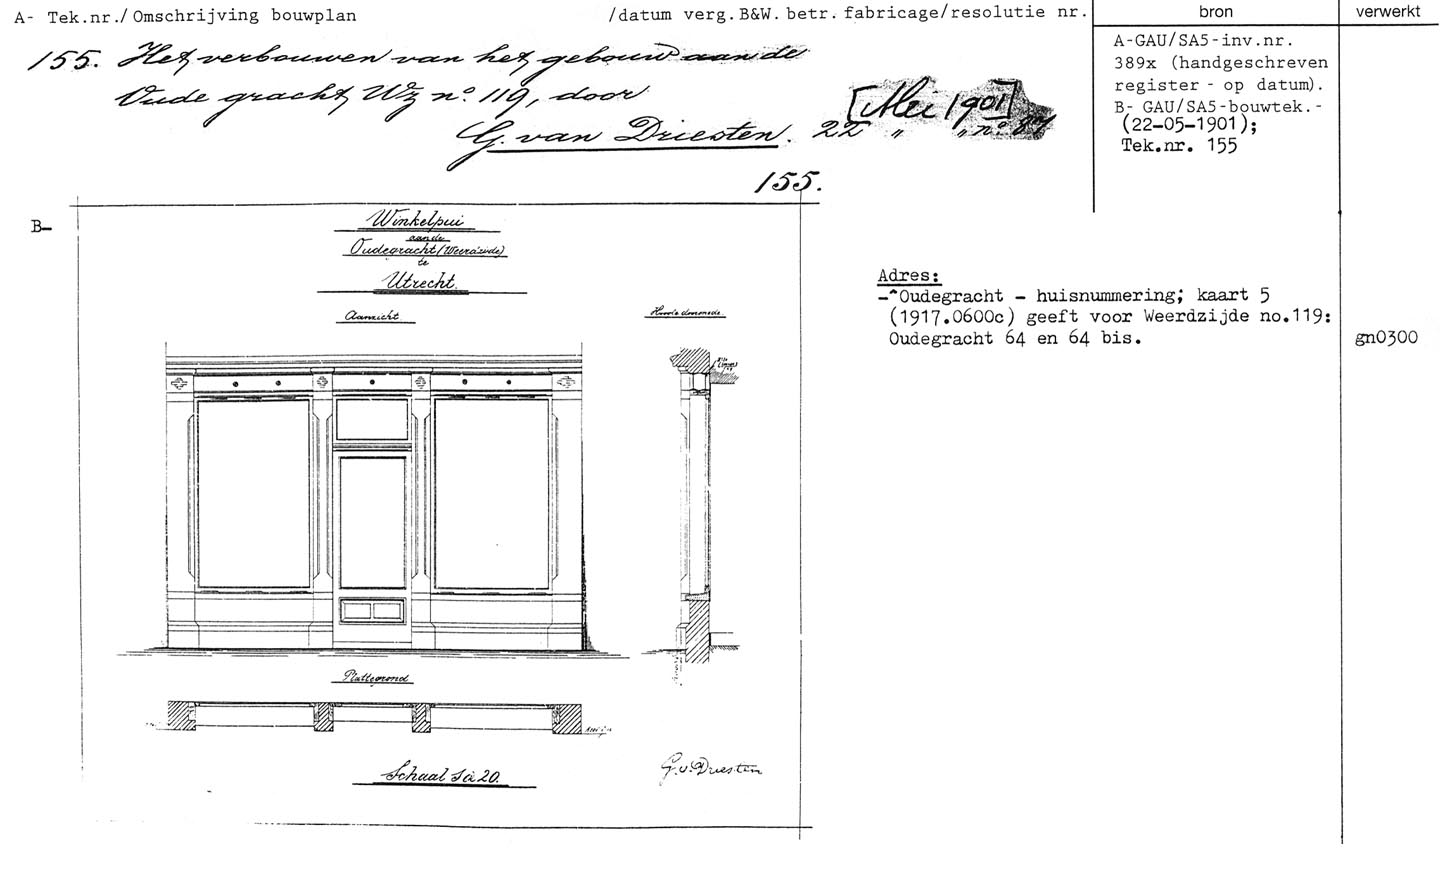 A- Tek.nr./Omschrijving bouwplan /datum verg.B&W. betr. fabricage/resolutie nr. bron verwerkt
155. Het verbouwen van het gebouw aan de
Oude gracht Wz no. 119, door
G. van Driesten. 22 " " no.
[Mei 1901]
A-GAU/SA5-inv.nr.
389x (handgeschreven
register - op datum).
B- GAU/SA5-bouwtek.-
(22-05-1901);
Tek.nr. 155
155.
B-
Winkelpui
aan de
Oudegracht (Weerdzijde)
te
Utrecht.
Aanzicht
Hoofddoorsnede.
Plattegrond
Schaal 1 à 20.
G. v. Driesten
Adres:
-^Oudegracht - huisnummering; kaart 5
(1917.0600c) geeft voor Weerdzijde no.119:
Oudegracht 64 en 64 bis.
gn0300